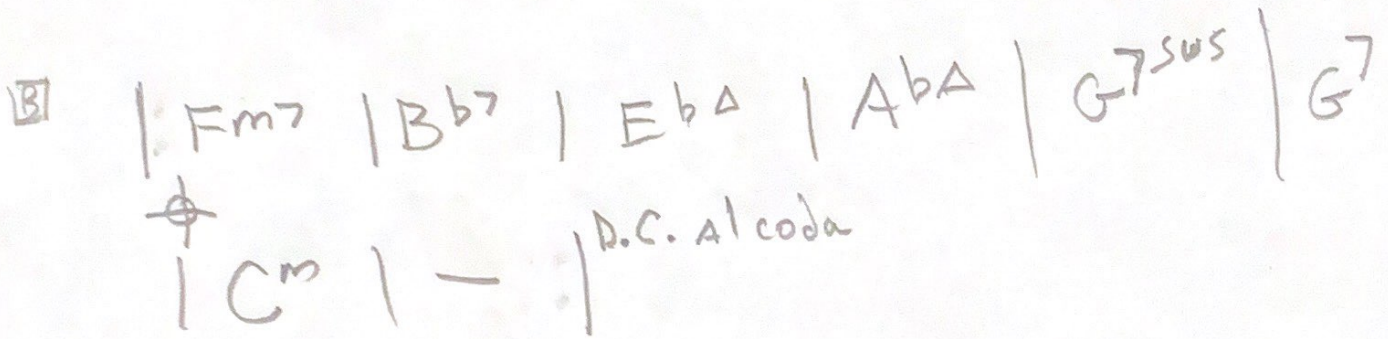 B |: Fm7 | Bb7 | EbΔ | AbΔ | G7sus | G7
𝄌
| Cm | — :| D.C. Al coda